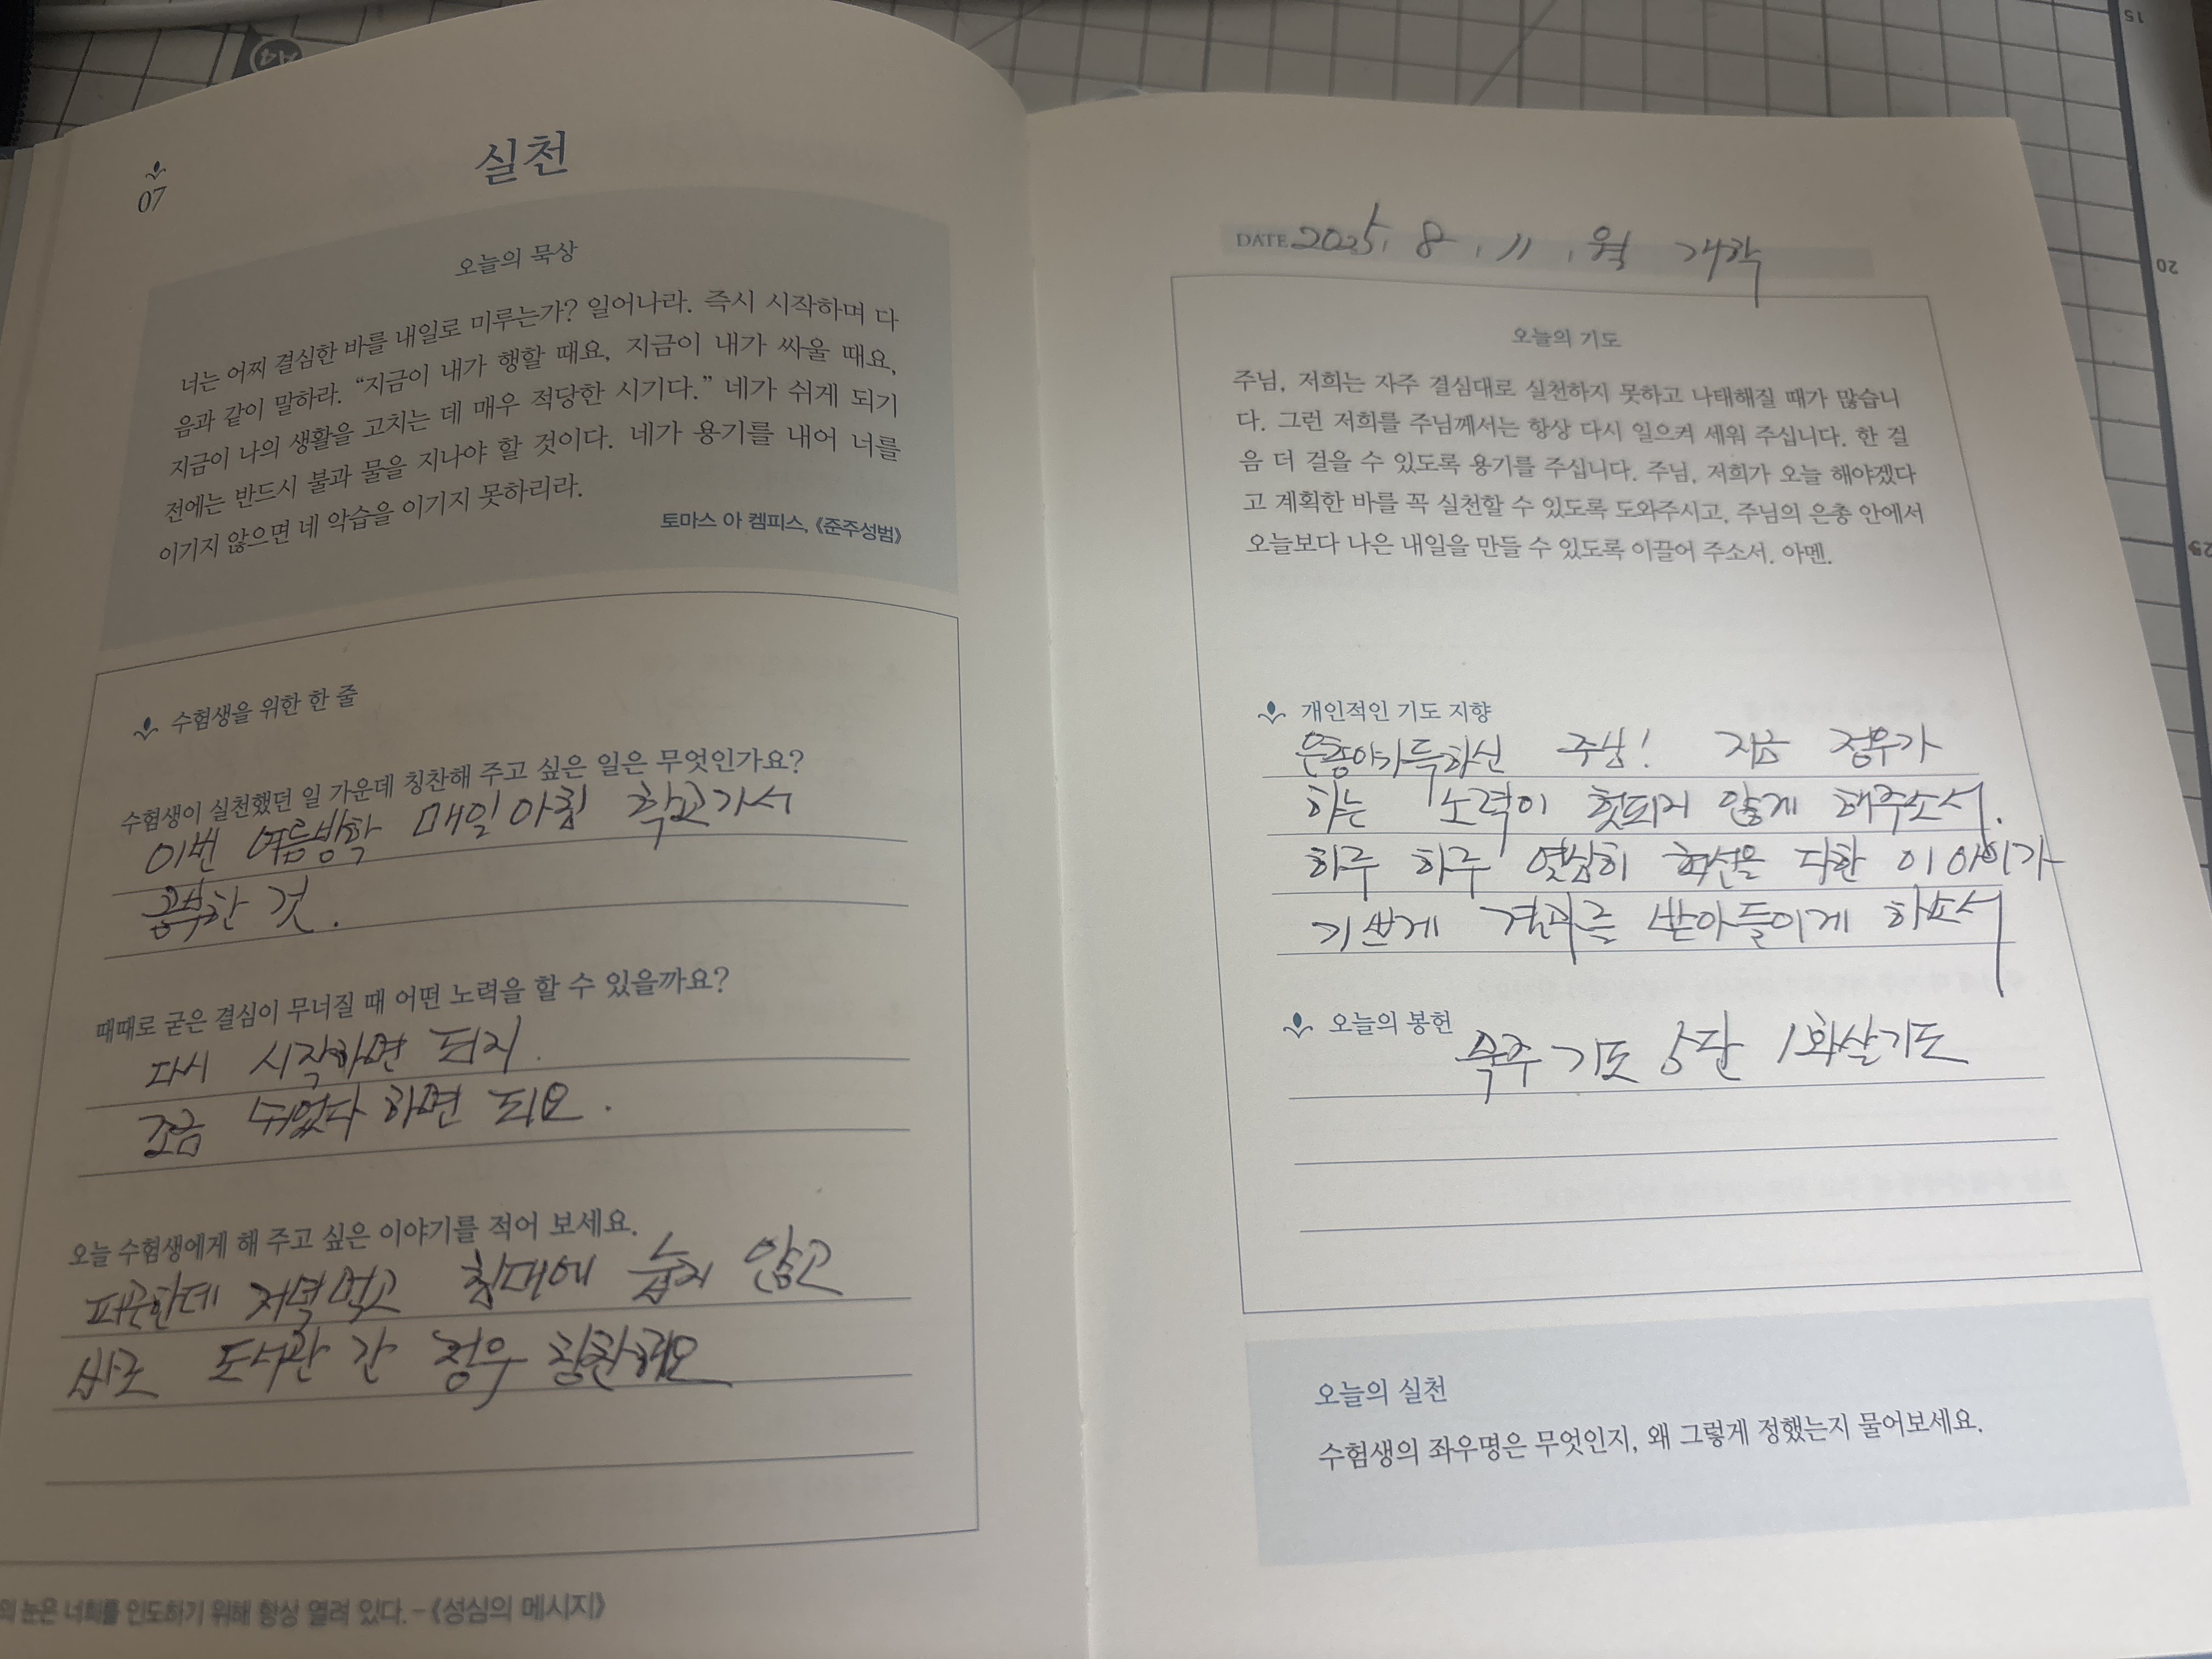 07
실천
오늘의 묵상
너는 어찌 결심한 바를 내일로 미루는가? 일어나라. 즉시 시작하며 다
음과 같이 말하라. “지금이 내가 행할 때요, 지금이 내가 싸울 때요,
지금이 나의 생활을 고치는 데 매우 적당한 시기다.” 네가 쉬게 되기
전에는 반드시 불과 물을 지나야 할 것이다. 네가 용기를 내어 너를
이기지 않으면 네 악습을 이기지 못하리라.
토마스 아 켐피스, 《준주성범》
수험생을 위한 한 줄
수험생이 실천했던 일 가운데 칭찬해 주고 싶은 일은 무엇인가요?
이번 여름방학 매일 아침 학교가서
공부한 것.
때때로 굳은 결심이 무너질 때 어떤 노력을 할 수 있을까요?
다시 시작하면 되지.
조금 쉬었다 하면 되요.
오늘 수험생에게 해 주고 싶은 이야기를 적어 보세요.
피곤한데 저녁먹고 침대에 눕지 않고
바로 도서관 간 정우 칭찬해요
의 눈은 너희를 인도하기 위해 항상 열려 있다. - 《성심의 메시지》
DATE 2025. 8. 11. 월 개학
오늘의 기도
주님, 저희는 자주 결심대로 실천하지 못하고 나태해질 때가 많습니
다. 그런 저희를 주님께서는 항상 다시 일으켜 세워 주십니다. 한 걸
음 더 걸을 수 있도록 용기를 주십니다. 주님, 저희가 오늘 해야겠다
고 계획한 바를 꼭 실천할 수 있도록 도와주시고, 주님의 은총 안에서
오늘보다 나은 내일을 만들 수 있도록 이끌어 주소서. 아멘.
개인적인 기도 지향
주님! 지금 정우가
하는 노력이 헛되지 않게 해주소서.
하루 하루 열심히 최선을 다한 이 아이가
기쁘게 결과를 받아들이게 하소서
오늘의 봉헌
묵주 기도 5단 1화살기도
오늘의 실천
수험생의 좌우명은 무엇인지, 왜 그렇게 정했는지 물어보세요.
15
20
25